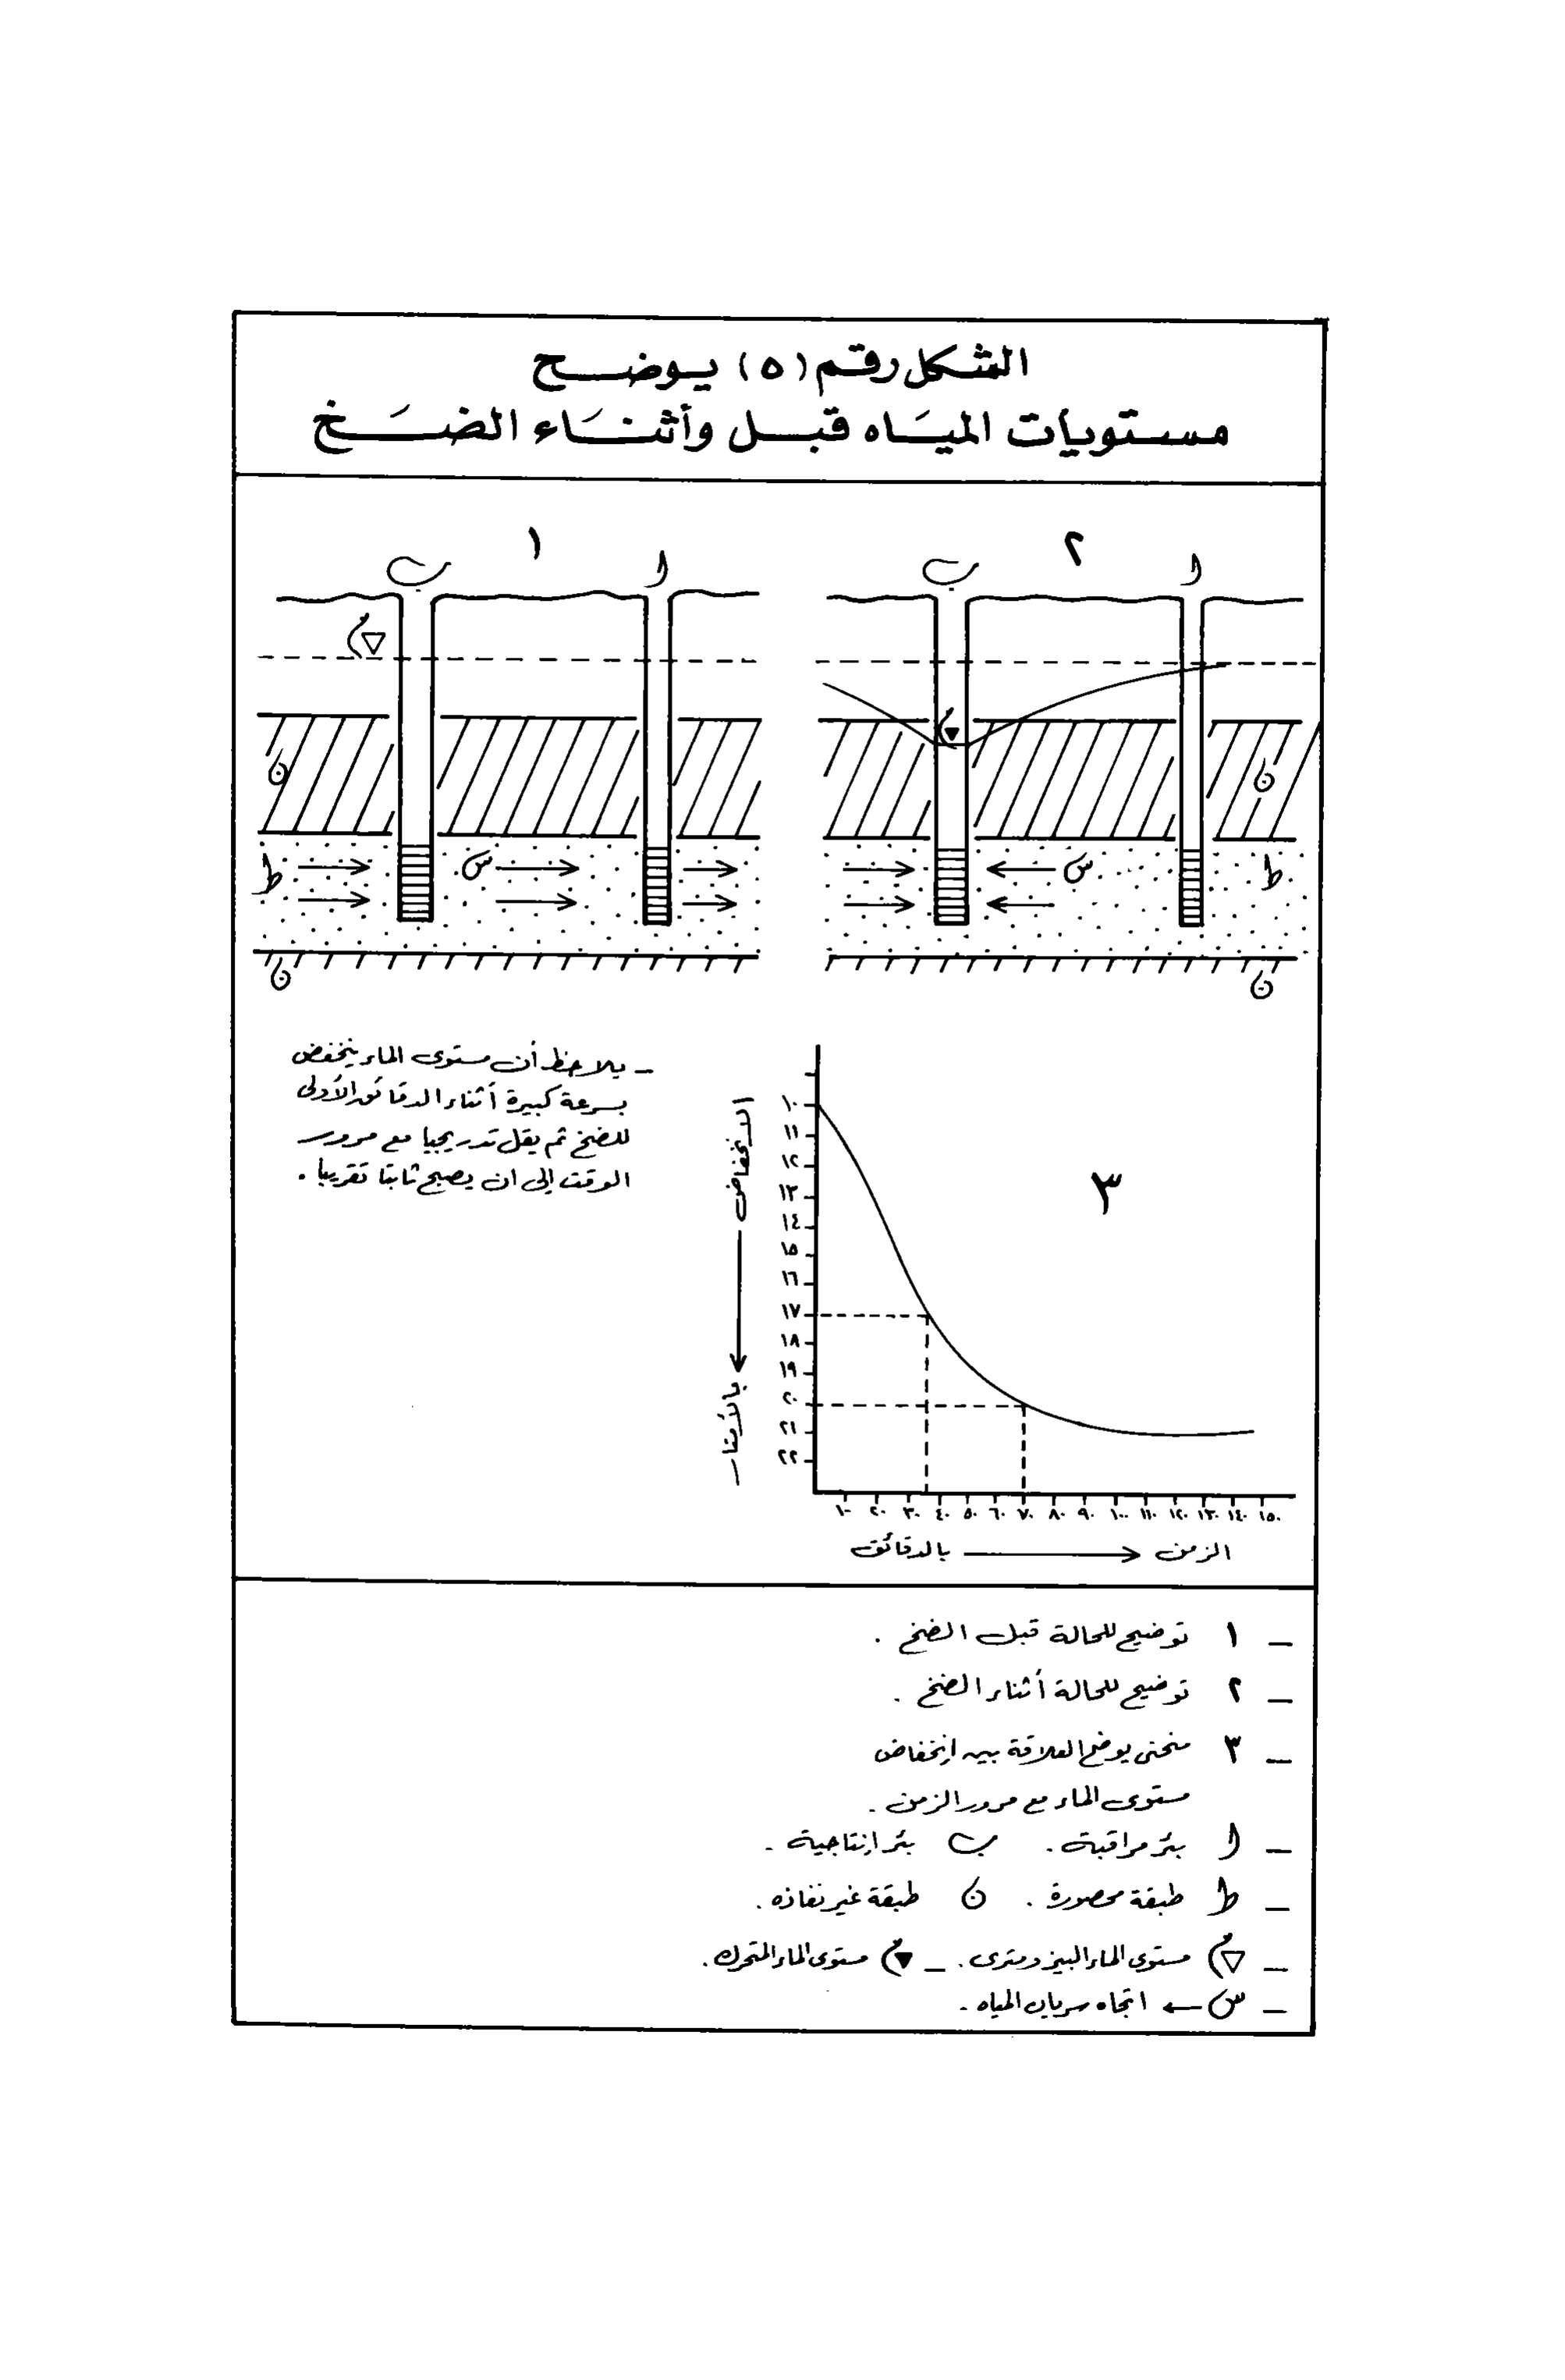 الشكل رقم (٥) يوضح
مستويات المياه قبل وأثناء الضخ
٢
١
ا
ب
ا
ب
م
م
ن
ن
ط
س
س
ط
ن
ن
- يلاحظ أن مستوى الماء ينخفض
بسرعة كبيرة أثناء الدقائق الأولى
للضخ ثم يقل تدريجيا مع مرور
الوقت إلى ان يصبح ثابتا تقريبا .
٣
الانخفاض
بالأمتار
١٠
١١
١٢
١٣
١٤
١٥
١٦
١٧
١٨
١٩
٢٠
٢١
٢٢
١٠ ٢٠ ٣٠ ٤٠ ٥٠ ٦٠ ٧٠ ٨٠ ٩٠ ١٠٠ ١١٠ ١٢٠ ١٣٠ ١٤٠ ١٥٠
الزمن ← بالدقائق
- ١ توضيح للحالة قبل الضخ .
- ٢ توضيح للحالة أثناء الضخ .
- ٣ منحنى يوضح العلاقة بين إنخفاض
مستوى الماء مع مرور الزمن .
- ا بئر مراقبة . ب بئر إنتاجية .
- ط طبقة محصورة . ن طبقة غير نفاذه .
- م ▽ مستوى الماء البيزومترى . - م ▼ مستوى الماء المتحرك .
- س ← اتجاه سريان المياه .